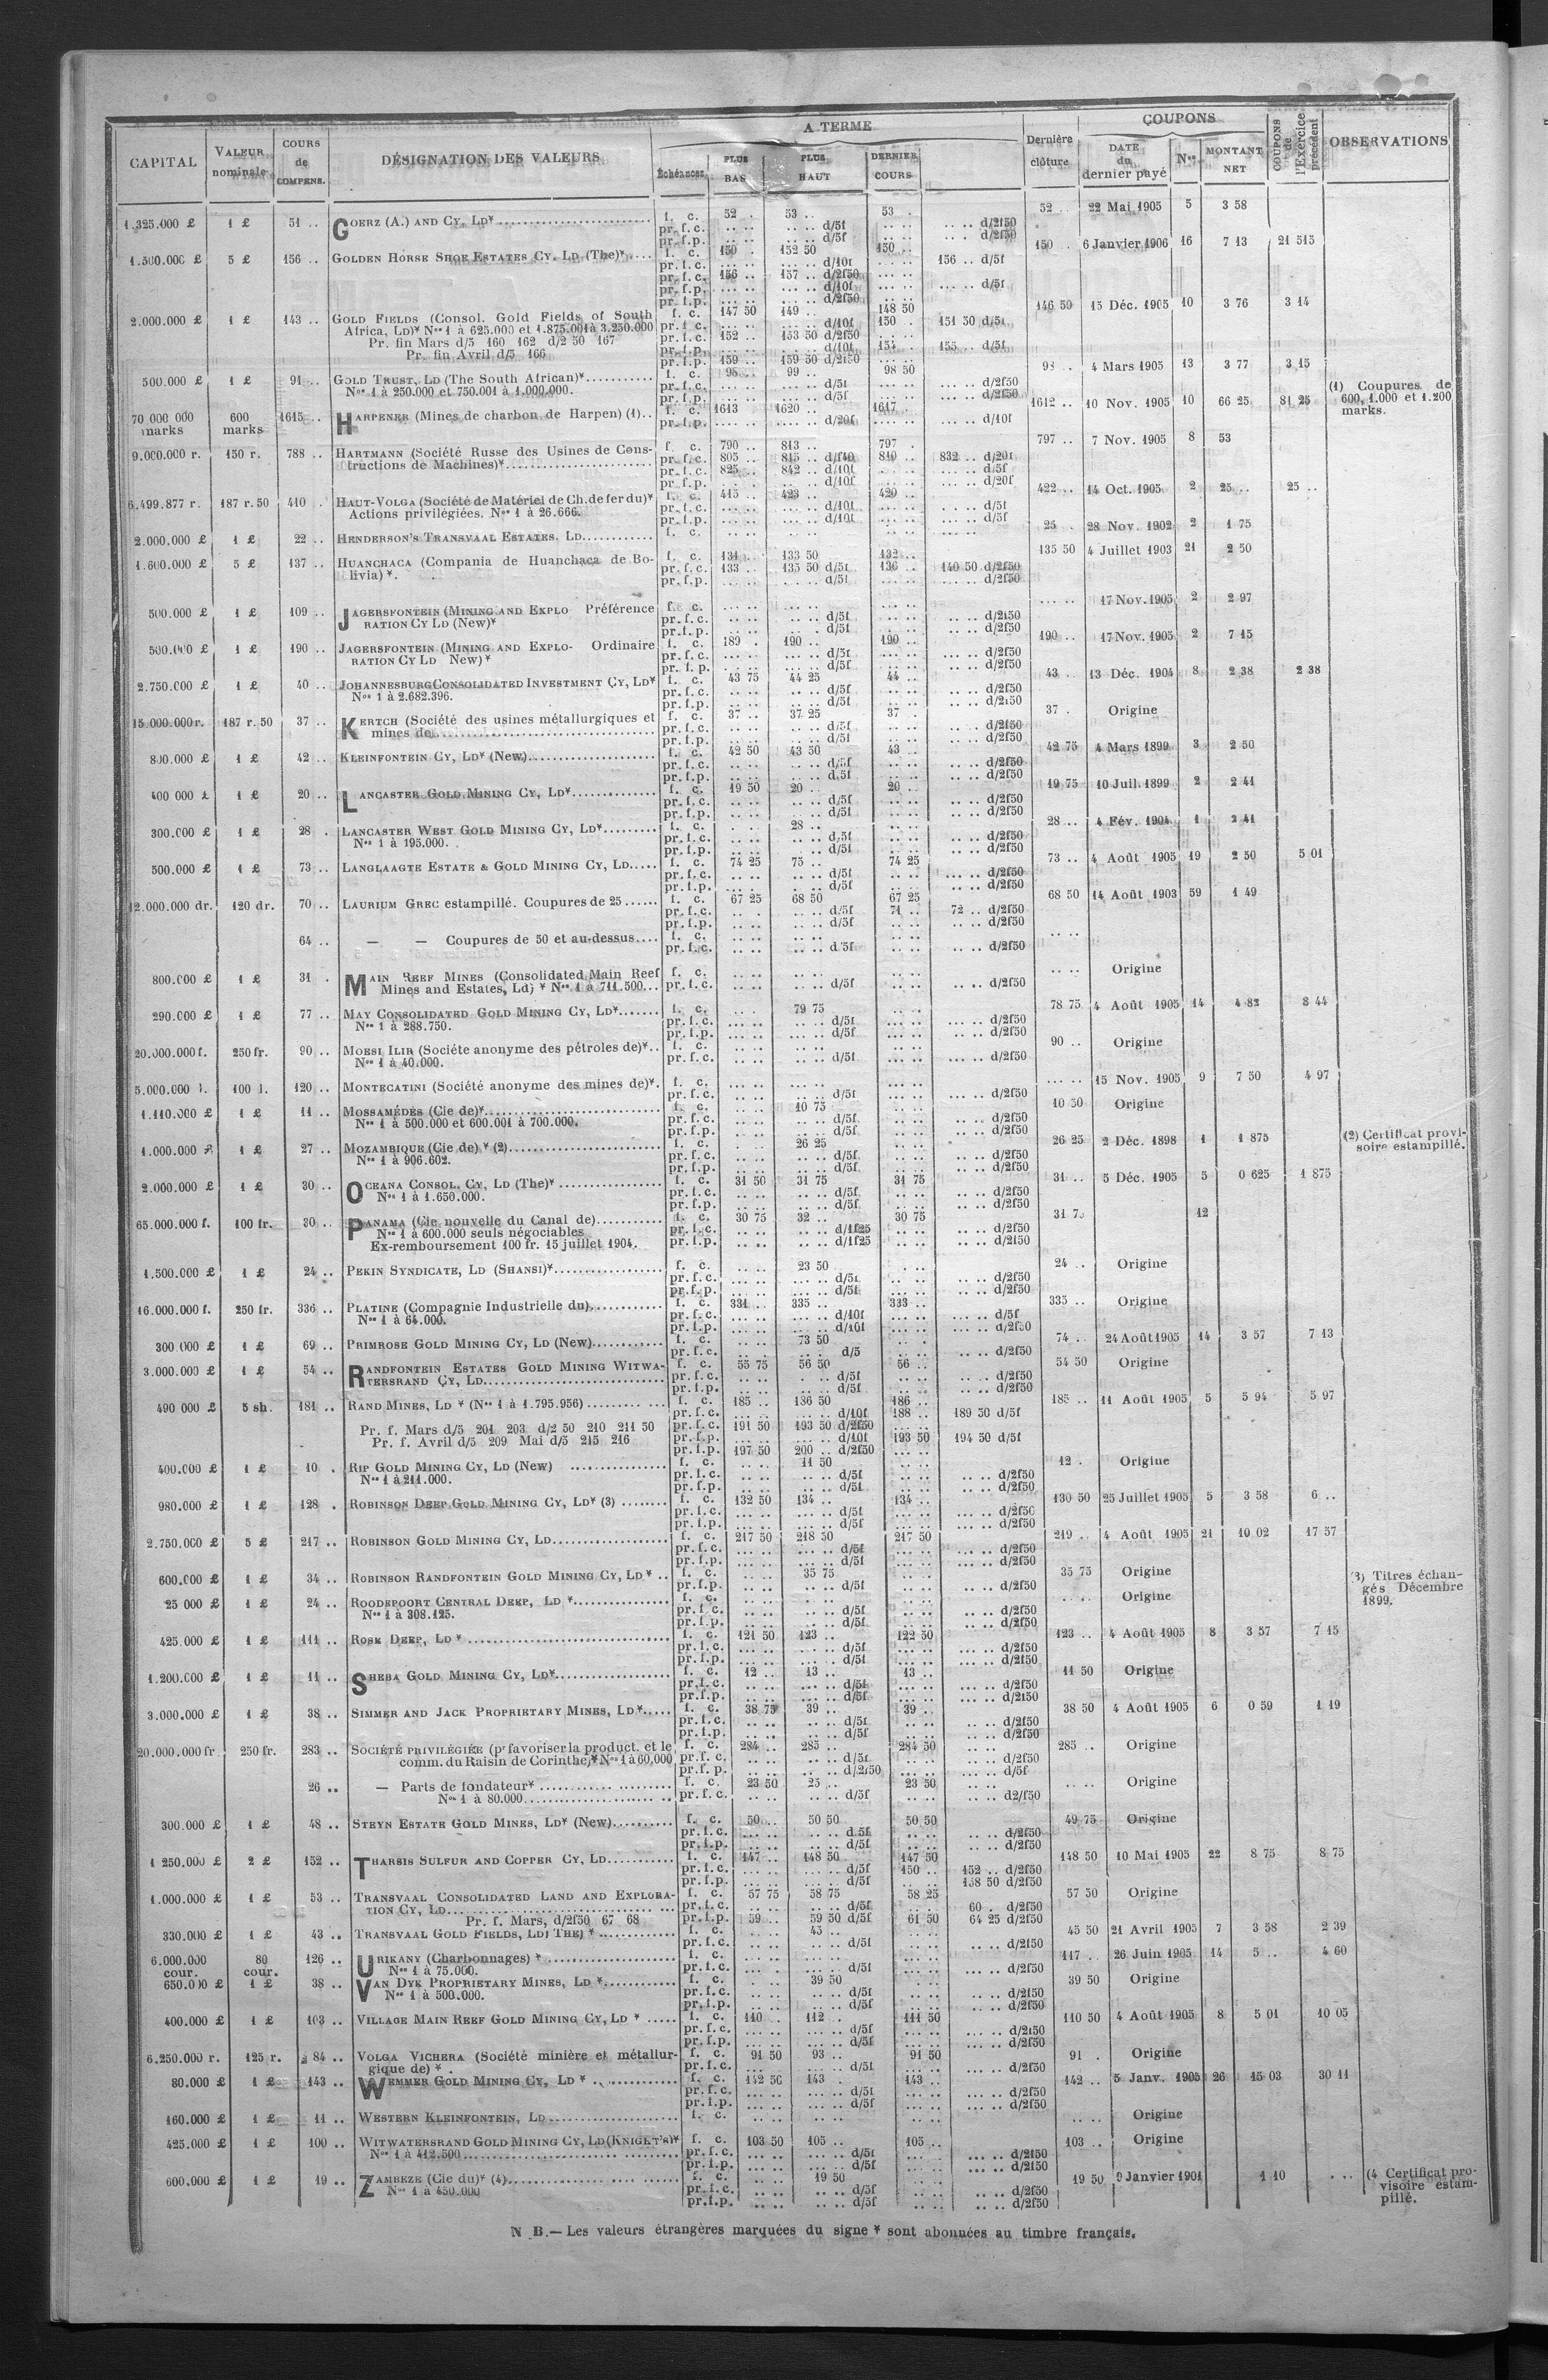 CAPITAL VALEUR nominale COURS de COMPENS. DÉSIGNATION DES VALEURS A TERME Échéances PLUS BAS PLUS HAUT DERNIER COURS Dernière clôture COUPONS DATE du dernier payé Nos MONTANT NET COUPONS de l'Exercice précédent OBSERVATIONS
1.325.000 £ 1 £ 51 .. GOERZ (A.) AND CY, LD* f. c. 52 . 53 .. 53 . 52 .. 22 Mai 1905 5 3 58
pr. f. c. d/5f d/2f50
pr. f. p. d/5f d/2f50
1.500.000 £ 5 £ 156 .. GOLDEN HORSE SHOE ESTATES CY, LD (The)* f. c. 150 . 152 50 150 .. 150 .. 6 Janvier 1906 16 7 13 21 515
pr. f. c. d/10f 156 .. d/5f
pr. f. c. 156 .. 157 .. d/2f50
pr. f. p. d/10f d/5f
pr. f. p. d/2f50
2.000.000 £ 1 £ 143 .. GOLD FIELDS (Consol. Gold Fields of South f. c. 147 50 149 .. 148 50 146 50 15 Déc. 1905 10 3 76 3 14
Africa, LD)* Nos 1 à 625.000 et 1.875.001 à 3.250.000 pr. f. c. d/10f 150 . 151 50 d/5f
Pr. fin Mars d/5 160 162 d/2 50 167 pr. f. c. 152 .. 153 50 d/2f50
Pr. fin Avril d/5 166 pr. f. p. d/10f 154 . 155 .. d/5f
pr. f. p. 159 .. 159 50 d/2f50
500.000 £ 1 £ 91 .. GOLD TRUST, LD (The South African)* f. c. 98 .. 99 .. 98 50 98 .. 4 Mars 1905 13 3 77 3 15
Nos 1 à 250.000 et 750.001 à 1.000.000. pr. f. c. d/5f d/2f50
pr. f. p. d/5f d/2f50
(1) Coupures de 600, 1.000 et 1.200 marks.
70 000 000 marks 600 marks 1615 .. HARPENER (Mines de charbon de Harpen) (1).. f. c. 1613 1620 .. 1617 . 1612 .. 10 Nov. 1905 10 66 25 81 25
pr. f. p. d/20f d/10f
9.000.000 r. 150 r. 788 .. HARTMANN (Société Russe des Usines de Cons- f. c. 790 .. 813 .. 797 . 797 .. 7 Nov. 1905 8 53
tructions de Machines)* pr. f. c. 805 .. 815 .. d/f40 810 .. 832 .. d/20f
pr. f. c. 825 .. 842 .. d/10f d/5f
pr. f. p. d/10f d/20f
6.499.877 r. 187 r. 50 410 . HAUT-VOLGA (Société de Matériel de Ch. de fer du)* f. c. 415 .. 423 .. 420 .. 422 .. 14 Oct. 1905 2 25 .. 25 ..
Actions privilégiées. Nos 1 à 26.666. pr. f. c. d/10f d/5f
pr. f. p. d/10f d/5f
2.000.000 £ 1 £ 22 .. HENDERSON'S TRANSVAAL ESTATES, LD f. c. 25 . 28 Nov. 1902 2 1 75
1.600.000 £ 5 £ 137 .. HUANCHACA (Compania de Huanchaca de Bo- f. c. 131 .. 133 50 132 .. 135 50 4 Juillet 1903 21 2 50
livia)*. pr. f. c. 133 .. 135 50 d/5f 136 .. 140 50 d/2f50
pr. f. p. d/5f d/2f50
500.000 £ 1 £ 109 .. JAGERSFONTEIN (MINING AND EXPLO- Préférence f. c. 17 Nov. 1905 2 2 97
RATION CY LD (New)* pr. f. c. d/5f d/2f50
pr. f. p. d/5f d/2f50
500.000 £ 1 £ 190 .. JAGERSFONTEIN (MINING AND EXPLO- Ordinaire f. c. 189 . 190 .. 190 .. 190 .. 17 Nov. 1905 2 7 15
RATION CY LD New)* pr. f. c. d/5f d/2f50
pr. f. p. d/5f d/2f50
2.750.000 £ 1 £ 40 .. JOHANNESBURG CONSOLIDATED INVESTMENT CY, LD* f. c. 43 75 44 25 44 .. 43 .. 13 Déc. 1904 8 2 38 2 38
Nos 1 à 2.682.396. pr. f. c. d/5f d/2f50
pr. f. p. d/5f d/2f50
15.000.000 r. 187 r. 50 37 .. KERTCH (Société des usines métallurgiques et f. c. 37 .. 37 25 37 . 37 . Origine
mines de pr. f. c. d/5f d/2f50
pr. f. p. d/5f d/2f50
800.000 £ 1 £ 42 .. KLEINFONTEIN CY, LD* (New) f. c. 42 50 43 50 43 .. 42 75 4 Mars 1899 3 2 50
pr. f. c. d/5f d/2f50
pr. f. p. d/5f d/2f50
400 000 £ 1 £ 20 .. LANCASTER GOLD MINING CY, LD* f. c. 19 50 20 .. 20 .. 19 75 10 Juil. 1899 2 2 41
pr. f. c. d/5f d/2f50
pr. f. p. d/5f d/2f50
300.000 £ 1 £ 28 . LANCASTER WEST GOLD MINING CY, LD* f. c. 28 .. 28 .. 4 Fév. 1904 1 2 41
Nos 1 à 195.000. pr. f. c. d/5f d/2f50
pr. f. p. d/5f d/2f50
500.000 £ 1 £ 73 .. LANGLAAGTE ESTATE & GOLD MINING CY, LD f. c. 74 25 75 .. 74 25 73 .. 4 Août 1905 19 2 50 5 01
pr. f. c. d/5f d/2f50
pr. f. p. d/5f d/2f50
12.000.000 dr. 120 dr. 70 .. LAURIUM GREC estampillé. Coupures de 25 f. c. 67 25 68 50 67 25 68 50 14 Août 1903 59 1 49
pr. f. c. d/5f 71 .. 72 .. d/2f50
pr. f. p. d/5f d/2f50
64 .. — — Coupures de 50 et au-dessus f. c.
pr. f. c. d/5f d/2f50
800.000 £ 1 £ 31 . MAIN REEF MINES (Consolidated Main Reef f. c. Origine
Mines and Estates, Ld) * Nos 1 à 711.500 pr. f. c. d/5f d/2f50
290.000 £ 1 £ 77 .. MAY CONSOLIDATED GOLD MINING CY, LD* f. c. 79 75 78 75 4 Août 1905 14 4 82 8 44
Nos 1 à 288.750. pr. f. c. d/5f d/2f50
pr. f. p. d/5f d/2f50
20.000.000 f. 250 fr. 90 .. MOESI ILIR (Sociéte anonyme des pétroles de)* f. c. 90 .. Origine
Nos 1 à 40.000. pr. f. c. d/5f d/2f50
5.000.000 l. 100 l. 120 .. MONTECATINI (Société anonyme des mines de)*. f. c. 15 Nov. 1905 9 7 50 4 97
pr. f. c. d/5f d/2f50
1.110.000 £ 1 £ 11 .. MOSSAMÉDÈS (Cie de)* f. c. 10 75 10 50 Origine
Nos 1 à 500.000 et 600.001 à 700.000. pr. f. c. d/5f d/2f50
pr. f. p. d/5f d/2f50
1.000.000 £ 1 £ 27 .. MOZAMBIQUE (Cie de) * (2) f. c. 26 25 26 25 2 Déc. 1898 1 1 875 (2) Certificat provi-
Nos 1 à 906.602. pr. f. c. d/5f d/2f50 soire estampillé.
pr. f. p. d/5f d/2f50
2.000.000 £ 1 £ 30 .. OCEANA CONSOL. CY, LD (The)* f. c. 31 50 31 75 31 75 31 .. 5 Déc. 1905 5 0 625 1 875
Nos 1 à 1.650.000. pr. f. c. d/5f d/2f50
pr. f. p. d/5f d/2f50
65.000.000 f. 100 fr. 30 .. PANAMA (Cie nouvelle du Canal de) f. c. 30 75 32 .. 30 75 31 75 12
Nos 1 à 600.000 seuls négociables pr. f. c. d/1f25 d/2f50
Ex-remboursement 100 fr. 15 juillet 1904. pr. f. p. d/1f25 d/2f50
1.500.000 £ 1 £ 24 .. PEKIN SYNDICATE, LD (SHANSI)* f. c. 23 50 24 .. Origine
pr. f. c. d/5f d/2f50
pr. f. p. d/5f d/2f50
16.000.000 f. 250 fr. 336 .. PLATINE (Compagnie Industrielle du) f. c. 331 .. 335 .. 333 .. 335 .. Origine
Nos 1 à 64.000. pr. f. c. d/10f d/5f
pr. f. p. d/10f d/2f50
300 000 £ 1 £ 69 .. PRIMROSE GOLD MINING CY, LD (New) f. c. 73 50 74 .. 24 Août 1905 14 3 57 7 13
pr. f. c. d/5 d/2f50
3.000.000 £ 1 £ 54 .. RANDFONTEIN ESTATES GOLD MINING WITWA- f. c. 55 75 56 50 56 .. 54 50 Origine
TERSRAND CY, LD pr. f. c. d/5f d/2f50
pr. f. p. d/5f d/2f50
490 000 £ 5 sh. 181 .. RAND MINES, LD * (Nos 1 à 1.795.956) f. c. 185 .. 186 50 186 .. 185 .. 11 Août 1905 5 5 94 5 97
pr. f. c. d/10f 188 .. 189 50 d/5f
Pr. f. Mars d/5 201 203 d/2 50 210 211 50 pr. f. c. 191 50 193 50 d/2f50
Pr. f. Avril d/5 209 Mai d/5 215 216 pr. f. p. d/10f 193 50 194 50 d/5f
pr. f. p. 197 50 200 .. d/2f50
400.000 £ 1 £ 10 . RIP GOLD MINING CY, LD (New) f. c. 11 50 12 . Origine
Nos 1 à 211.000. pr. f. c. d/5f d/2f50
pr. f. p. d/5f d/2f50
980.000 £ 1 £ 128 . ROBINSON DEEP GOLD MINING CY, LD* (3) f. c. 132 50 134 .. 134 .. 130 50 25 Juillet 1905 5 3 58 6 ..
pr. f. c. d/5f d/2f50
pr. f. p. d/5f d/2f50
2.750.000 £ 5 £ 217 .. ROBINSON GOLD MINING CY, LD f. c. 217 50 218 50 217 50 219 .. 4 Août 1905 21 10 02 17 57
pr. f. c. d/5f d/2f50
pr. f. p. d/5f d/2f50
600.000 £ 1 £ 34 .. ROBINSON RANDFONTEIN GOLD MINING CY, LD * f. c. 35 75 35 75 Origine (3) Titres échan-
pr. f. p. d/5f d/2f50 gés Décembre
25 000 £ 1 £ 24 .. ROODEPOORT CENTRAL DEEP, LD * f. c. Origine 1899.
Nos 1 à 308.125. pr. f. c. d/5f d/2f50
pr. f. p. d/5f d/2f50
425.000 £ 1 £ 111 .. ROSE DEEP, LD * f. c. 121 50 123 .. 122 50 123 .. 4 Août 1905 8 3 57 7 15
pr. f. c. d/5f d/2f50
pr. f. p. d/5f d/2f50
1.200.000 £ 1 £ 11 .. SHEBA GOLD MINING CY, LD* f. c. 12 .. 13 .. 13 .. 11 50 Origine
pr. f. c. d/5f d/2f50
pr. f. p. d/5f d/2f50
3.000.000 £ 1 £ 38 .. SIMMER AND JACK PROPRIETARY MINES, LD* f. c. 38 75 39 .. 39 .. 38 50 4 Août 1905 6 0 59 1 19
pr. f. c. d/5f d/2f50
pr. f. p. d/5f d/2f50
20.000.000 fr 250 fr. 283 .. SOCIÉTÉ PRIVILÉGIÉE (pr favoriser la product. et le f. c. 284 .. 285 .. 284 50 285 .. Origine
comm. du Raisin de Corinthe)* Nos 1 à 60,000 pr. f. c. d/5f d/2f50
pr. f. p. d/2f50 d/5f
26 .. — Parts de fondateur* f. c. 23 50 25 .. 23 50 Origine
Nos 1 à 80.000 pr. f. c. d/5f d2/f50
300.000 £ 1 £ 48 .. STEYN ESTATE GOLD MINES, LD* (New) f. c. 50 .. 50 50 50 50 49 75 Origine
pr. f. c. d 5f d/2f50
pr. f. p. d/5f d/2f50
1 250.000 £ 2 £ 152 .. THARSIS SULFUR AND COPPER CY, LD f. c. 147 .. 148 50 147 50 148 50 10 Mai 1905 22 8 75 8 75
pr. f. c. d/5f 150 .. 152 .. d/2f50
pr. f. p. d/5f 158 50 d/2f50
1.000.000 £ 1 £ 53 .. TRANSVAAL CONSOLIDATED LAND AND EXPLORA- f. c. 57 75 58 75 58 25 57 50 Origine
TION CY, LD pr. f. c. d/5f 60 . d/2f50
Pr. f. Mars, d/2f50 67 68 pr. f. p. 59 .. 59 50 d/5f 61 50 64 25 d/2f50
330.000 £ 1 £ 43 .. TRANSVAAL GOLD FIELDS, LD) THE) * f. c. 45 .. 45 50 21 Avril 1905 7 3 58 2 39
pr. f. c. d/5f d/2f50
6.000.000 cour. 80 cour. 126 .. URIKANY (Charbonnages) * f. c. 117 .. 26 Juin 1905 14 5 .. 4 60
Nos 1 à 75.000. pr. f. c. d/2f50
650.000 £ 1 £ 38 .. VAN DYK PROPRIETARY MINES, LD * f. c. 39 50 39 50 Origine
Nos 1 à 500.000. pr. f. c. d/5f d/2f50
pr. f. p. d/5f d/2f50
400.000 £ 1 £ 103 .. VILLAGE MAIN REEF GOLD MINING CY, LD * f. c. 110 .. 112 . 111 50 110 50 4 Août 1905 8 5 01 10 05
pr. f. c. d/5f d/2f50
pr. f. p. d/5f d/2f50
6.250.000 r. 125 r. 84 .. VOLGA VICHERA (Société minière et métallur- f. c. 91 50 93 .. 91 50 91 . Origine
gique de) * pr. f. c. d/5f d/2f50
80.000 £ 1 £ 143 .. WEMMER GOLD MINING CY, LD * f. c. 142 50 143 . 143 .. 142 .. 5 Janv. 1905 26 15 03 30 11
pr. f. c. d/5f d/2f50
pr. f. p. d/5f d/2f50
160.000 £ 1 £ 11 .. WESTERN KLEINFONTEIN, LD f. c. Origine
425.000 £ 1 £ 100 .. WITWATERSRAND GOLD MINING CY, LD (KNIGHT'S)* f. c. 103 50 105 .. 105 .. 103 .. Origine
Nos 1 à 412.500 pr. f. c. d/5f d/2f50
pr. f. p. d/5f d/2f50
600.000 £ 1 £ 19 .. ZAMBEZE (Cie du)* (4) f. c. 19 50 19 50 9 Janvier 1901 1 10 (4 Certificat pro-
Nos 1 à 450.000 pr. f. c. d/5f d/2f50 visoire estam-
pr. f. p. d/5f d/2f50 pillé.
N B.— Les valeurs étrangères marquées du signe * sont abonnées au timbre français.